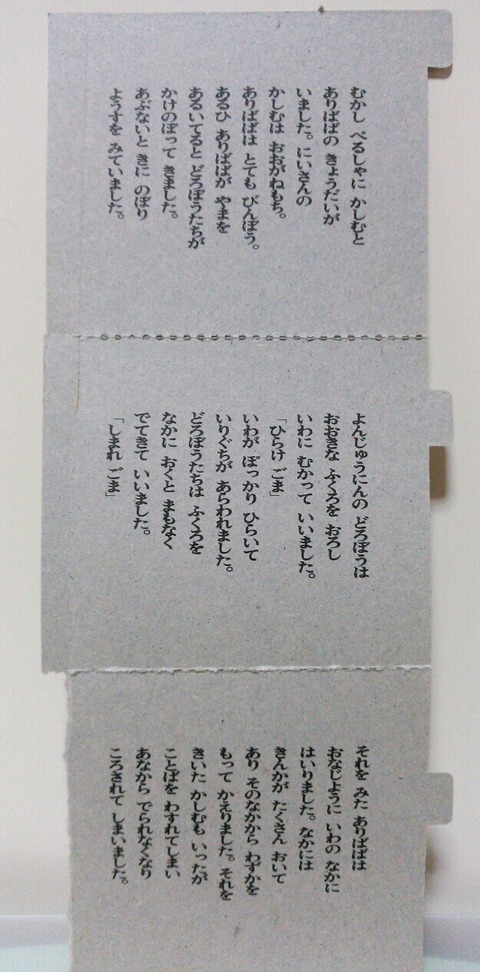 むかし べるしゃに かしむと
ありばばの きょうだいが
いました。にいさんの
かしむは おおがねもち。
ありばばは とても びんぼう。
あるひ ありばばが やまを
あるいてると どろぼうたちが
かけのぼって きました。
あぶないと きに のぼり
ようすを みていました。
よんじゅうにんの どろぼうは
おおきな ふくろを おろし
いわに むかって いいました。
「ひらけ ごま」
いわが ぽっかり ひらいて
いりぐちが あらわれました。
どろぼうたちは ふくろを
なかに おくと まもなく
でてきて いいました。
「しまれ ごま」
それを みた ありばばは
おなじように いわの なかに
はいりました。なかには
きんかが たくさん おいて
あり そのなかから わずかを
もって かえりました。それを
きいた かしむも いったが
ことばを わすれてしまい
あなから でられなくなり
ころされて しまいました。